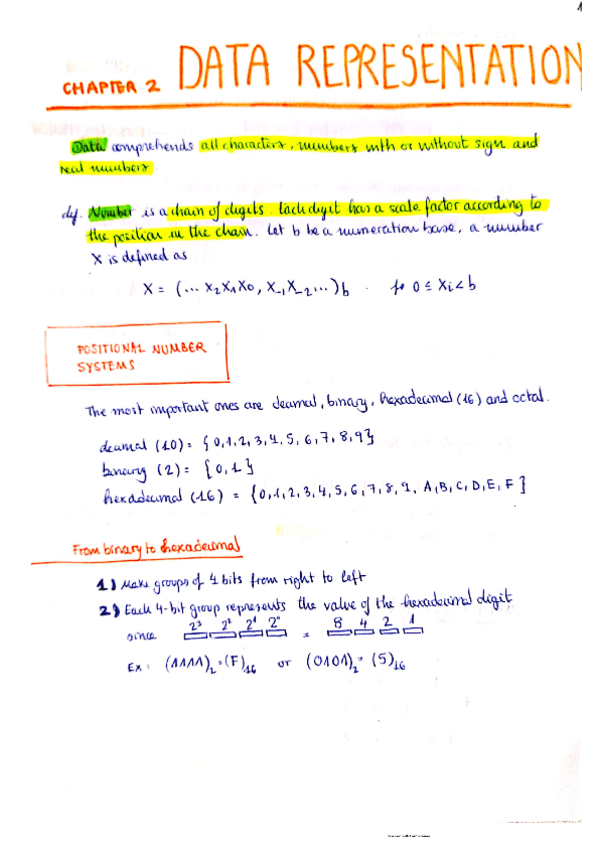 1
CHAPTER 2 DATA REPRESENTATION
Data comprehends all characters, numbers with or without sign and
real numbers.
df. Number is a chain of digits. Each digit has a scale factor according to
the position in the chain. Let b be a numeration base, a number
X is defined as
X = (... X₂X₁X₀, X₋₁X₋₂...)b . fo 0 ≤ Xi < b
POSITIONAL NUMBER
SYSTEMS
The most important ones are decimal, binary, hexadecimal (16) and octal.
decimal (10) = {0,1,2,3,4,5,6,7,8,9}
binary (2) = {0,1}
hexadecimal (16) = {0,1,2,3,4,5,6,7,8,9,A,B,C,D,E,F}
From binary to hexadecimal
1) Make groups of 4 bits from right to left
2) Each 4-bit group represents the value of the hexadecimal digit
2³ 2² 2¹ 2⁰ 8 4 2 1
since =
Ex: (1111)₂ = (F)₁₆ or (0101)₂ = (5)₁₆